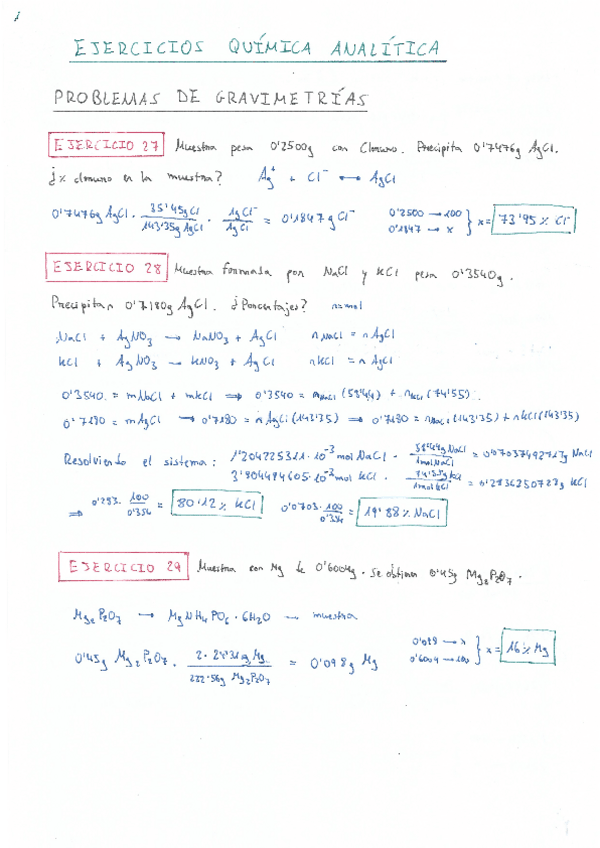 EJERCICIOS QUÍMICA ANALÍTICA
PROBLEMAS DE GRAVIMETRÍAS
EJERCICIO 27 Muestra pesa 0'2500g con Cloruro. Precipita 0'7476g AgCl.
¿% cloruro en la muestra? Ag⁺ + Cl⁻ ⟷ AgCl
0'7476g AgCl · 35'45g Cl / 143'35g AgCl · 1g Cl⁻ / AgCl = 0'1847 g Cl⁻ 0'2500 → 100 0'1847 → x } x = 73'95 % Cl⁻
EJERCICIO 28 Muestra formada por NaCl y KCl pesa 0'3540g.
Precipitan 0'7180g AgCl. ¿Porcentajes? n=mol
NaCl + AgNO₃ → NaNO₃ + AgCl n NaCl = n AgCl
KCl + AgNO₃ → KNO₃ + AgCl n KCl = n AgCl
0'3540 = mNaCl + mKCl ⟹ 0'3540 = nNaCl (58'44) + nKCl (74'55).
0'7180 = mAgCl → 0'7180 = n AgCl (143'35) ⟹ 0'7180 = nNaCl (143'35) + nKCl (143'35)
Resolviendo el sistema: 1'204225321·10⁻³ mol NaCl · 58'44g NaCl / 1mol NaCl = 0'0703749271g NaCl
3'804494605·10⁻³ mol KCl · 74'55g KCl / 1mol KCl = 0'2836250728g KCl
⟹ 0'283 · 100 / 0'354 = 80'12 % KCl 0'0703 · 100 / 0'354 = 19'88 % NaCl
EJERCICIO 29 Muestra con Mg de 0'6004g. Se obtienen 0'45g Mg₂P₂O₇.
Mg₂P₂O₇ → MgNH₄PO₆ · 6H₂O → muestra
0'45g Mg₂P₂O₇ · 2 · 24'31g Mg / 222'56g Mg₂P₂O₇ = 0'098g Mg 0'098 → x 0'6004 → 100 } x = 16 % Mg